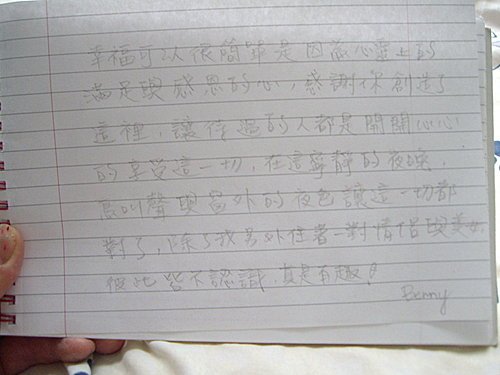 幸福可以很簡單是因為心靈上的
滿足與感恩的心，感謝你創造了
這裡，讓待過的人都是開開心心
的享受這一切，在這寧靜的夜晚，
鳥叫聲與窗外的夜色讓這一切都
對了，除了我另外住著一對情侶與美女
彼此皆不認識，真是有趣！
Benny